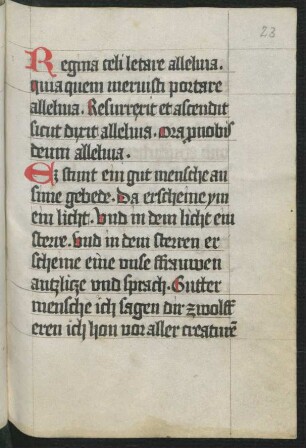 23
Regina celi letare alleluia.
quia quem meruisti portare
alleluia. Resurrexit et ascendit
sicut dixit alleluia. Ora p nobis
deum alleluia.
Ez stunt ein gut mensche an
sime gebede. Da erscheine ym
ein licht. Vnd in dem licht ein
sterre. Vnd in dem sterren er
scheine eine vnse ffrauwen
antzlitze vnd sprach. Gutter
mensche ich sagen dir zwolff
eren ich hon vor aller creaturē